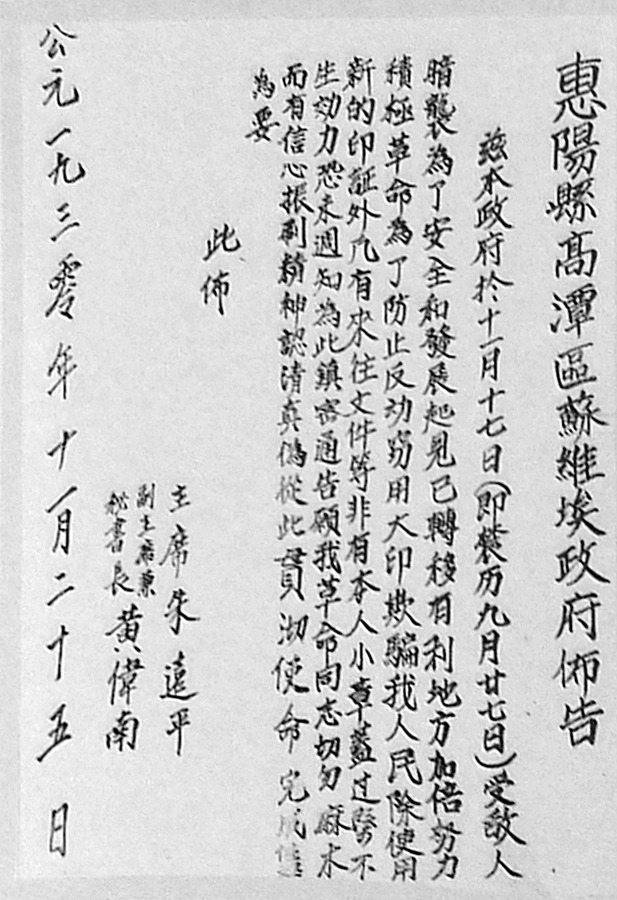 惠陽縣高潭區蘇維埃政府佈告
茲本政府於十一月十七日(即農历九月廿七日)受敌人
暗襲為了安全和發展起見已轉移有利地方加倍努力
積極革命為了防止反动窃用大印欺騙我人民除使用
新的印証外凡有來往文件等非有本人小章蓋过緊不
生効力恐未週知為此鎮密通告願我革命同志切勿麻木
而有信心振刷精神認清真偽從此貫沏使命完成
為要
此佈
主席朱遠平
副主席兼
秘書長黃偉南
公元一九三零年十一月二十五日